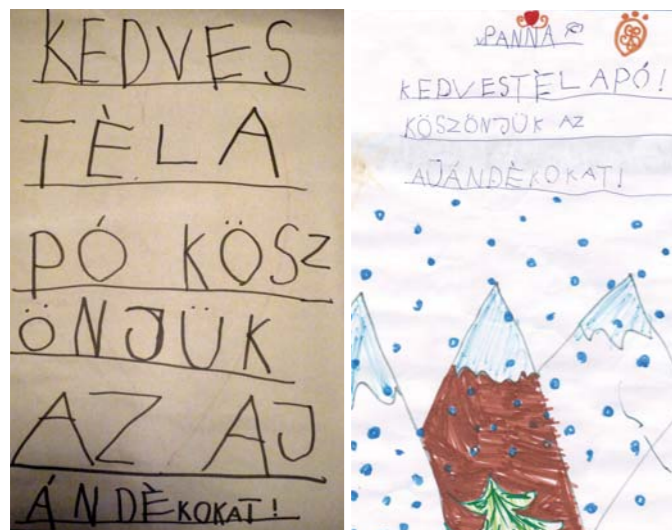 KEDVES
TÈLA
PÓ KÖSZ
ÖNJÜK
AZ AJ
ÁNDÈKOKAT!
PANNA
KEDVESTÈLAPÓ!
KÖSZÖNJÜK AZ
AJÁNDÈKOKAT!